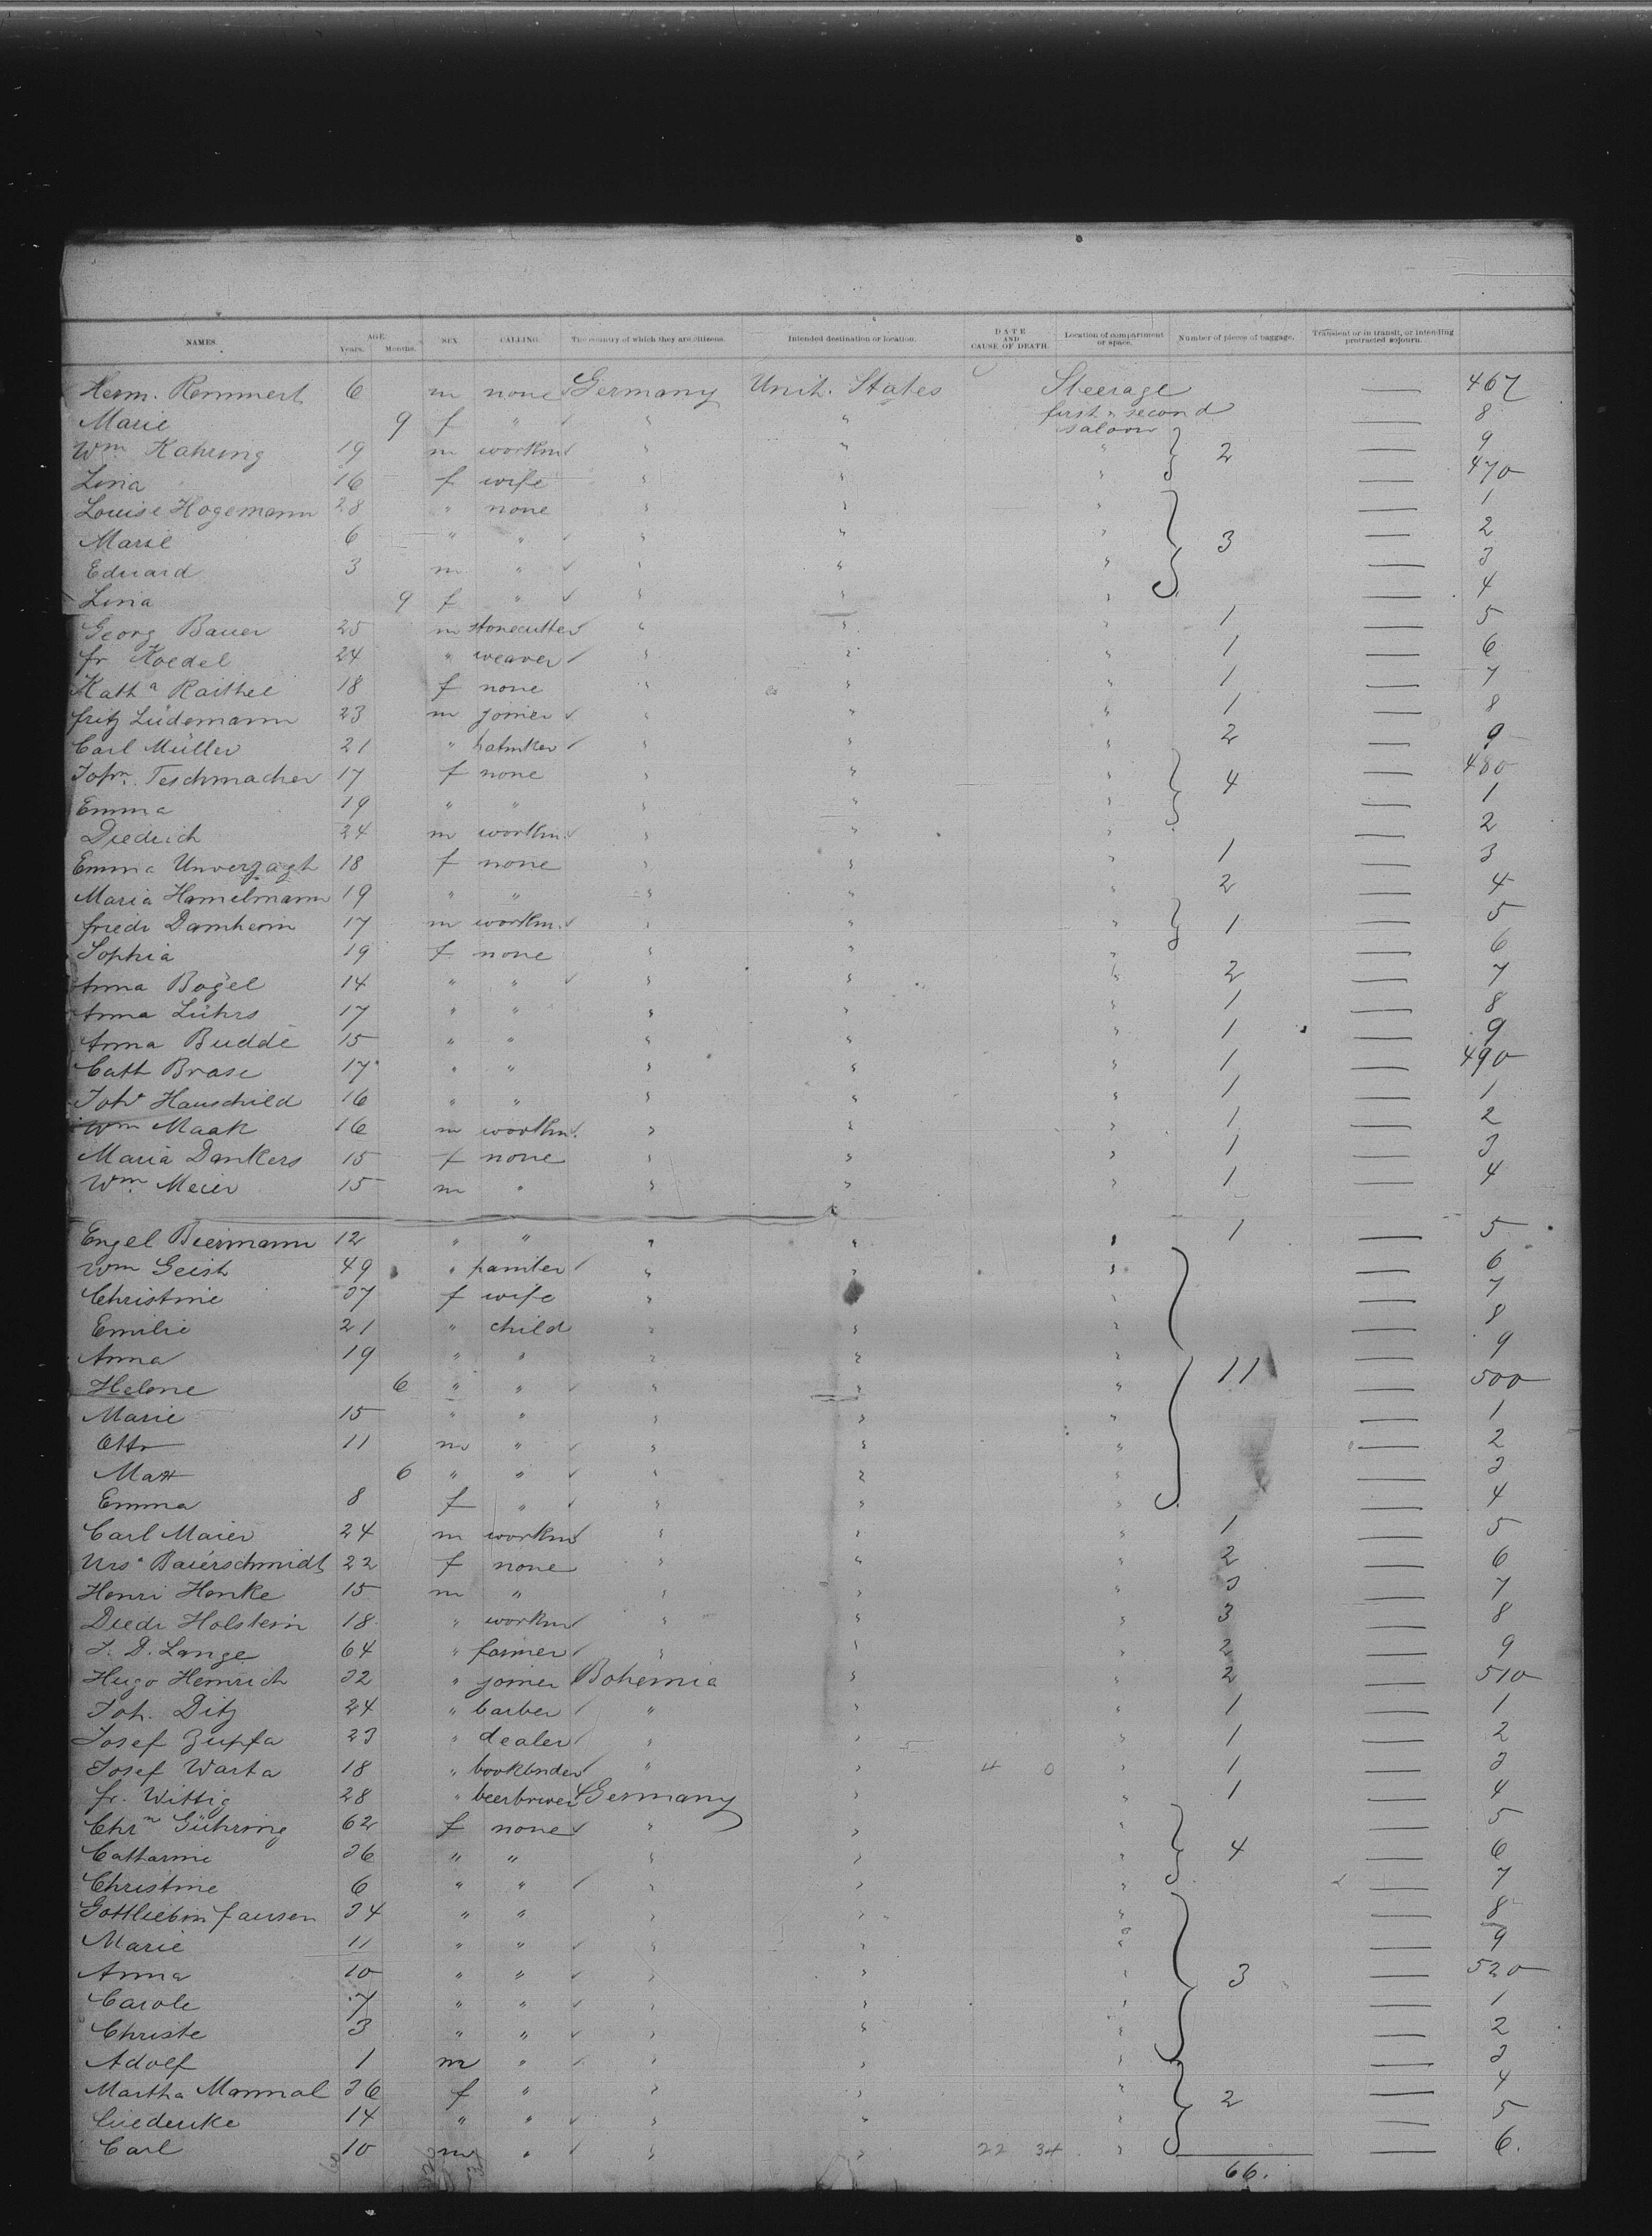 NAMES. AGE. Years. Months. SEX. CALLING. The country of which they are citizens. Intended destination or location. DATE AND CAUSE OF DEATH. Location of compartment or space. Number of pieces of baggage. Transient or in transit, or intending protracted sojourn.
Herm. Remmert 6 m none Germany Unit. States Steerage — 467
Marie 9 f " " " first & second saloon — 8
Wm Kahring 19 m workm " " " — 9
Lina 16 f wife " " " 2 — 470
Louise Hogemann 28 " none " " " — 1
Marie 6 " " " " " — 2
Eduard 3 m " " " " 3 — 3
Lina 9 f " " " " — 4
Georg Bauer 25 m stonecutter " " " 1 — 5
fr Koedel 24 " weaver " " " 1 — 6
Kath a Raithel 18 f none " " " 1 — 7
fritz Lüdemann 23 m joiner " " " 1 — 8
Carl Müller 21 " hatmker " " " 2 — 9
Joh n. Teschmacher 17 f none " " " — 480
Emma 19 " " " " " 4 — 1
Diedrich 24 m workm. " " " — 2
Emma Unverzagt 18 f none " " " 1 — 3
Maria Hamelmann 19 " " " " " 2 — 4
friedr Damheim 17 m workm. " " " — 5
Sophia 19 f none " " " 1 — 6
Anna Bogel 14 " " " " " 2 — 7
Anna Lührs 17 " " " " " 1 — 8
Anna Budde 15 " " " " " 1 — 9
Cath Brase 17 " " " " " 1 — 490
Joh Hauschild 16 " " " " " 1 — 1
Wm Maak 16 m workm. " " " 1 — 2
Maria Dankers 15 f none " " " 1 — 3
Wm. Meier 15 m " " " " 1 — 4
Engel Biermann 12 " " " " " 1 — 5
Wm Geist 49 " painter " " " — 6
Christine 37 f wife " " " — 7
Emilie 21 " child " " " — 8
Anna 19 " " " " " — 9
Helene 6 " " " " " 11 — 500
Marie 15 " " " " " — 1
Otto 11 m " " " " — 2
Max 6 " " " " " — 3
Emma 8 f " " " " — 4
Carl Maier 24 m workm " " " 1 — 5
Urs a Baierschmidt 22 f none " " " 2 — 6
Henri Henke 15 m " " " " 3 — 7
Diedr Holstein 18 " workm " " " 3 — 8
J. D. Lange 64 " farmer " " " 2 — 9
Hugo Heinrich 32 " joiner Bohemia " " 2 — 510
Joh. Ditz 24 " barber " " " 1 — 1
Josef Zupfa 23 " dealer " " " 1 — 2
Josef Warta 18 " bookbnder " " 4 0 " 1 — 3
fr. Wittig 28 " beerbrwer Germany " " 1 — 4
Chr n Gühring 62 f none " " " — 5
Catharine 36 " " " " " 4 — 6
Christine 6 " " " " " — 7
Gottliebin fausen 34 " " " " " — 8
Marie 11 " " " " " — 9
Anna 10 " " " " " 3 — 520
Carole 7 " " " " " — 1
Christe 3 " " " " " — 2
Adolf 1 m " " " " — 3
Martha Mannal 36 f " " " " 2 — 4
14 " " " " " — 5
Carl 10 m " " " 22 34 " — 6.
66.